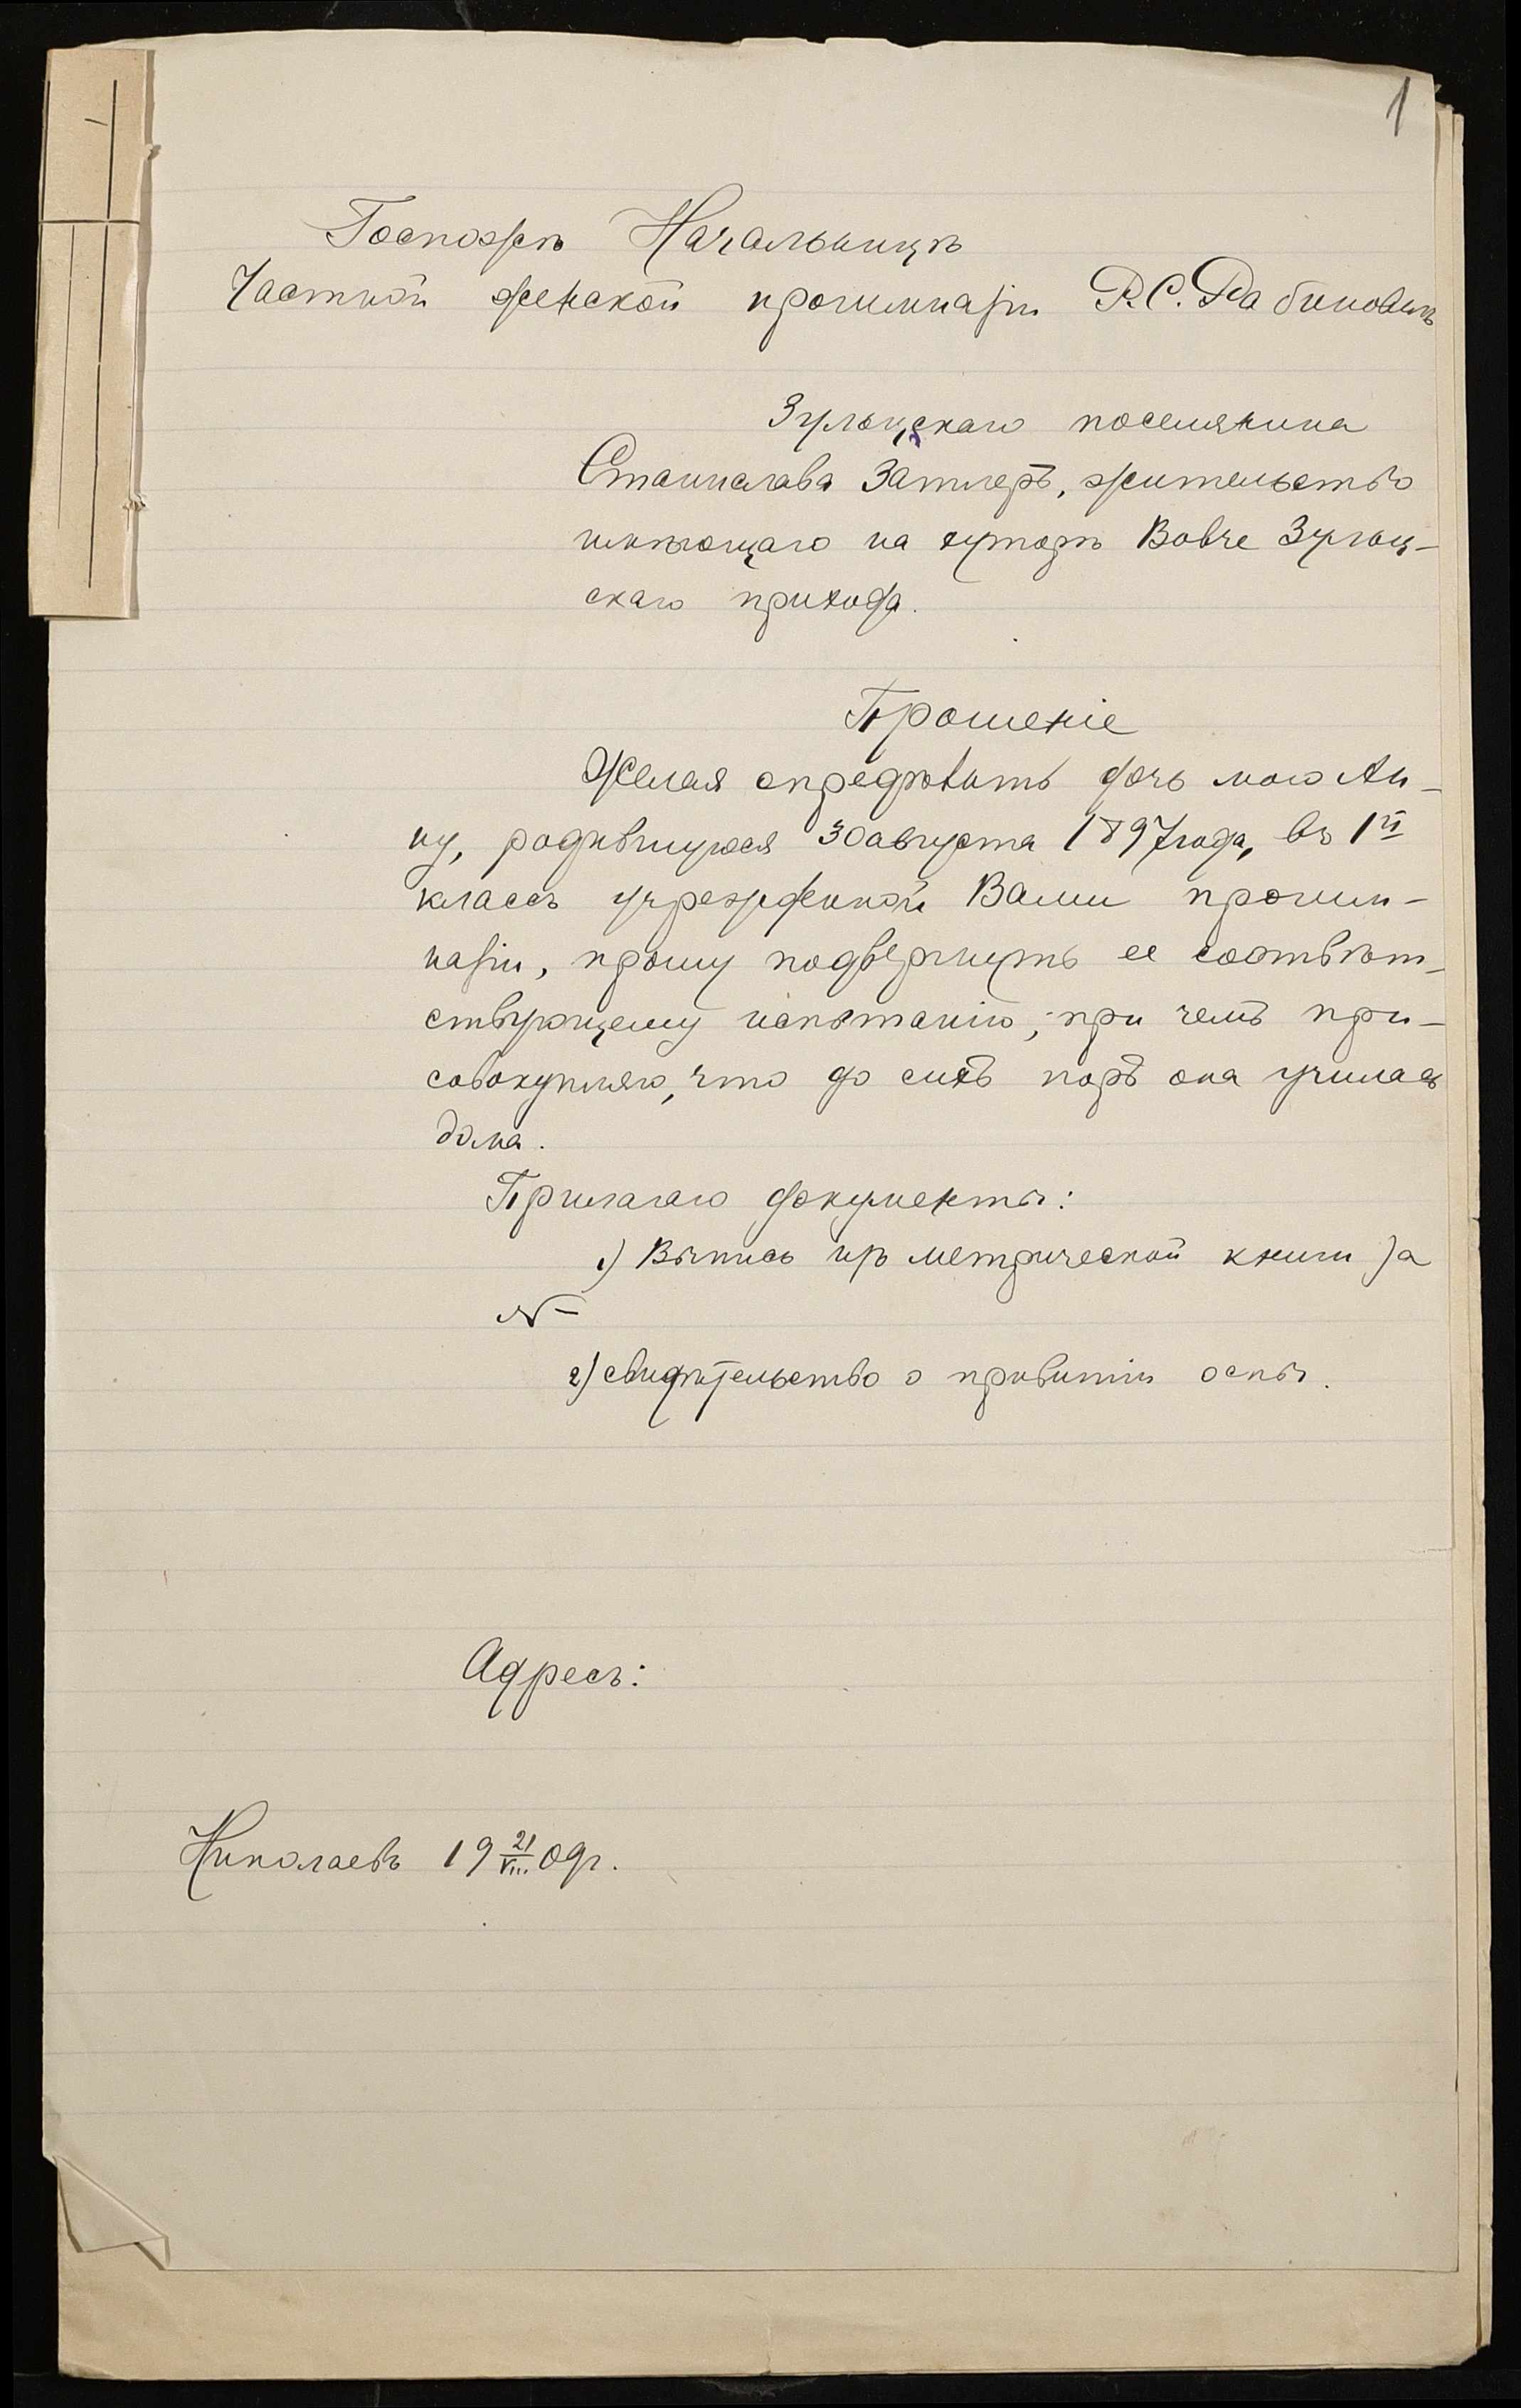 1
Госпожѣ Начальницѣ
Частной женской прогимназіи Р. С. Рабиновичъ
Зульцскаго поселянина
Станислава Затлеръ, жительство
имѣющаго на хуторѣ Вовче Зульц-
скаго прихода.
Прошеніе
Желая опредѣлить дочь мою Ан-
ну, родившуюся 30 августа 1897 года, въ 1й
классъ учрежденной Вами прогим-
назіи, прошу подвергнуть ее соотвѣт-
ствующему испытанію, при чемъ при-
совокупляю, что до сихъ поръ она училась
дома.
Прилагаю документы:
1) Выпись изъ метрической книги за
№ –
2) свидѣтельство о привитіи оспы.
Адресъ:
Николаевъ 19 21/VIII 09 г.